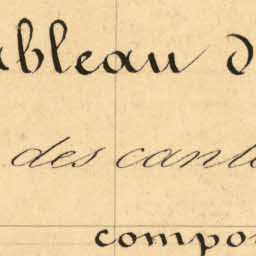 ableau d
des canto
compo